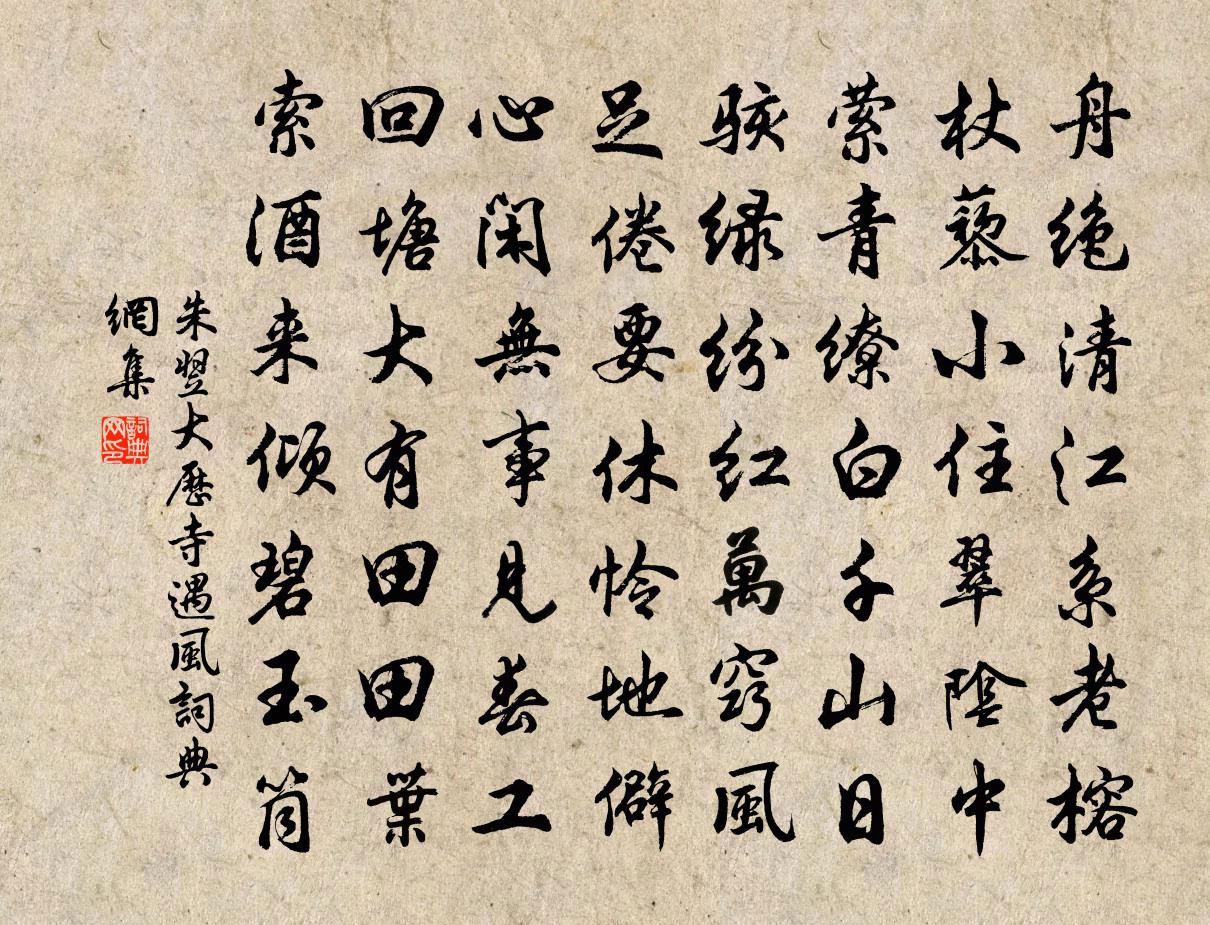 舟绝清江系老榕
杖藜小住翠陰中
萦青缭白千山日
骇绿纷红萬窍風
足倦要休怜地僻
心闲無事見春工
回塘大有田田葉
索酒来倾碧玉筒
朱翌大歷寺遇風詞典
網集
詞典
网印